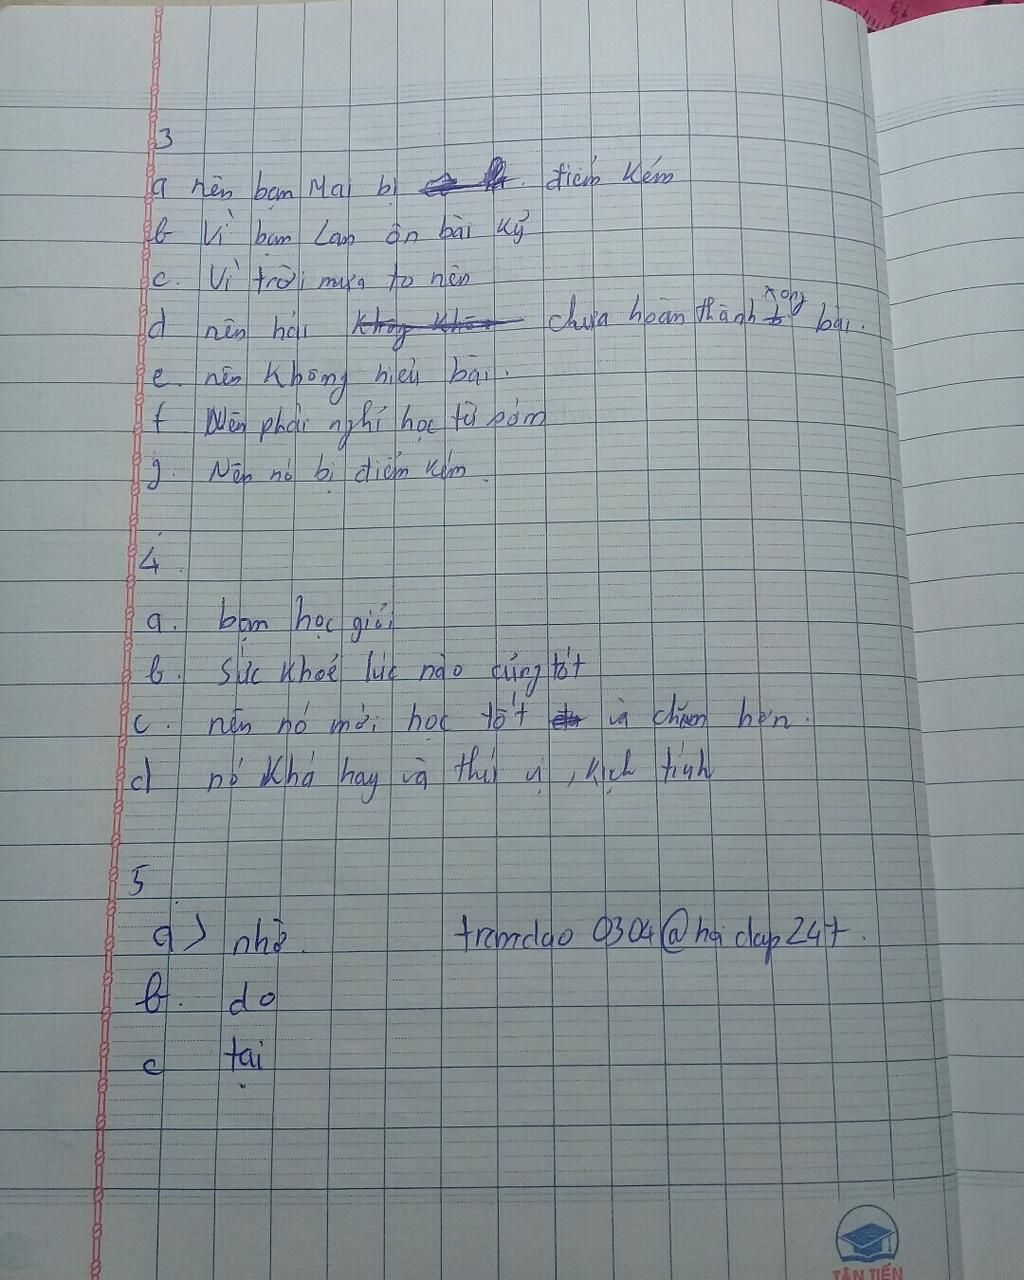 3
a nên bạn Mai bị điểm kém
b Vì bạn Lan ôn bài kỹ
c. Vì trời mưa to nên
d nên hải chưa hoàn thành xong bài.
e. nên không hiểu bài.
f Nên phải nghỉ học từ sớm
g. Nên nó bị điểm kém.
4
a. bạn học giỏi
b. Sức khoẻ lúc nào cũng tốt
c. nên nó mới học tốt và chăm hơn.
d nó khá hay và thú vị, kịch tính
5
a) nhờ. tramdao 0304@hoi dap 247.
b. do
c tại
TÂN TIẾN